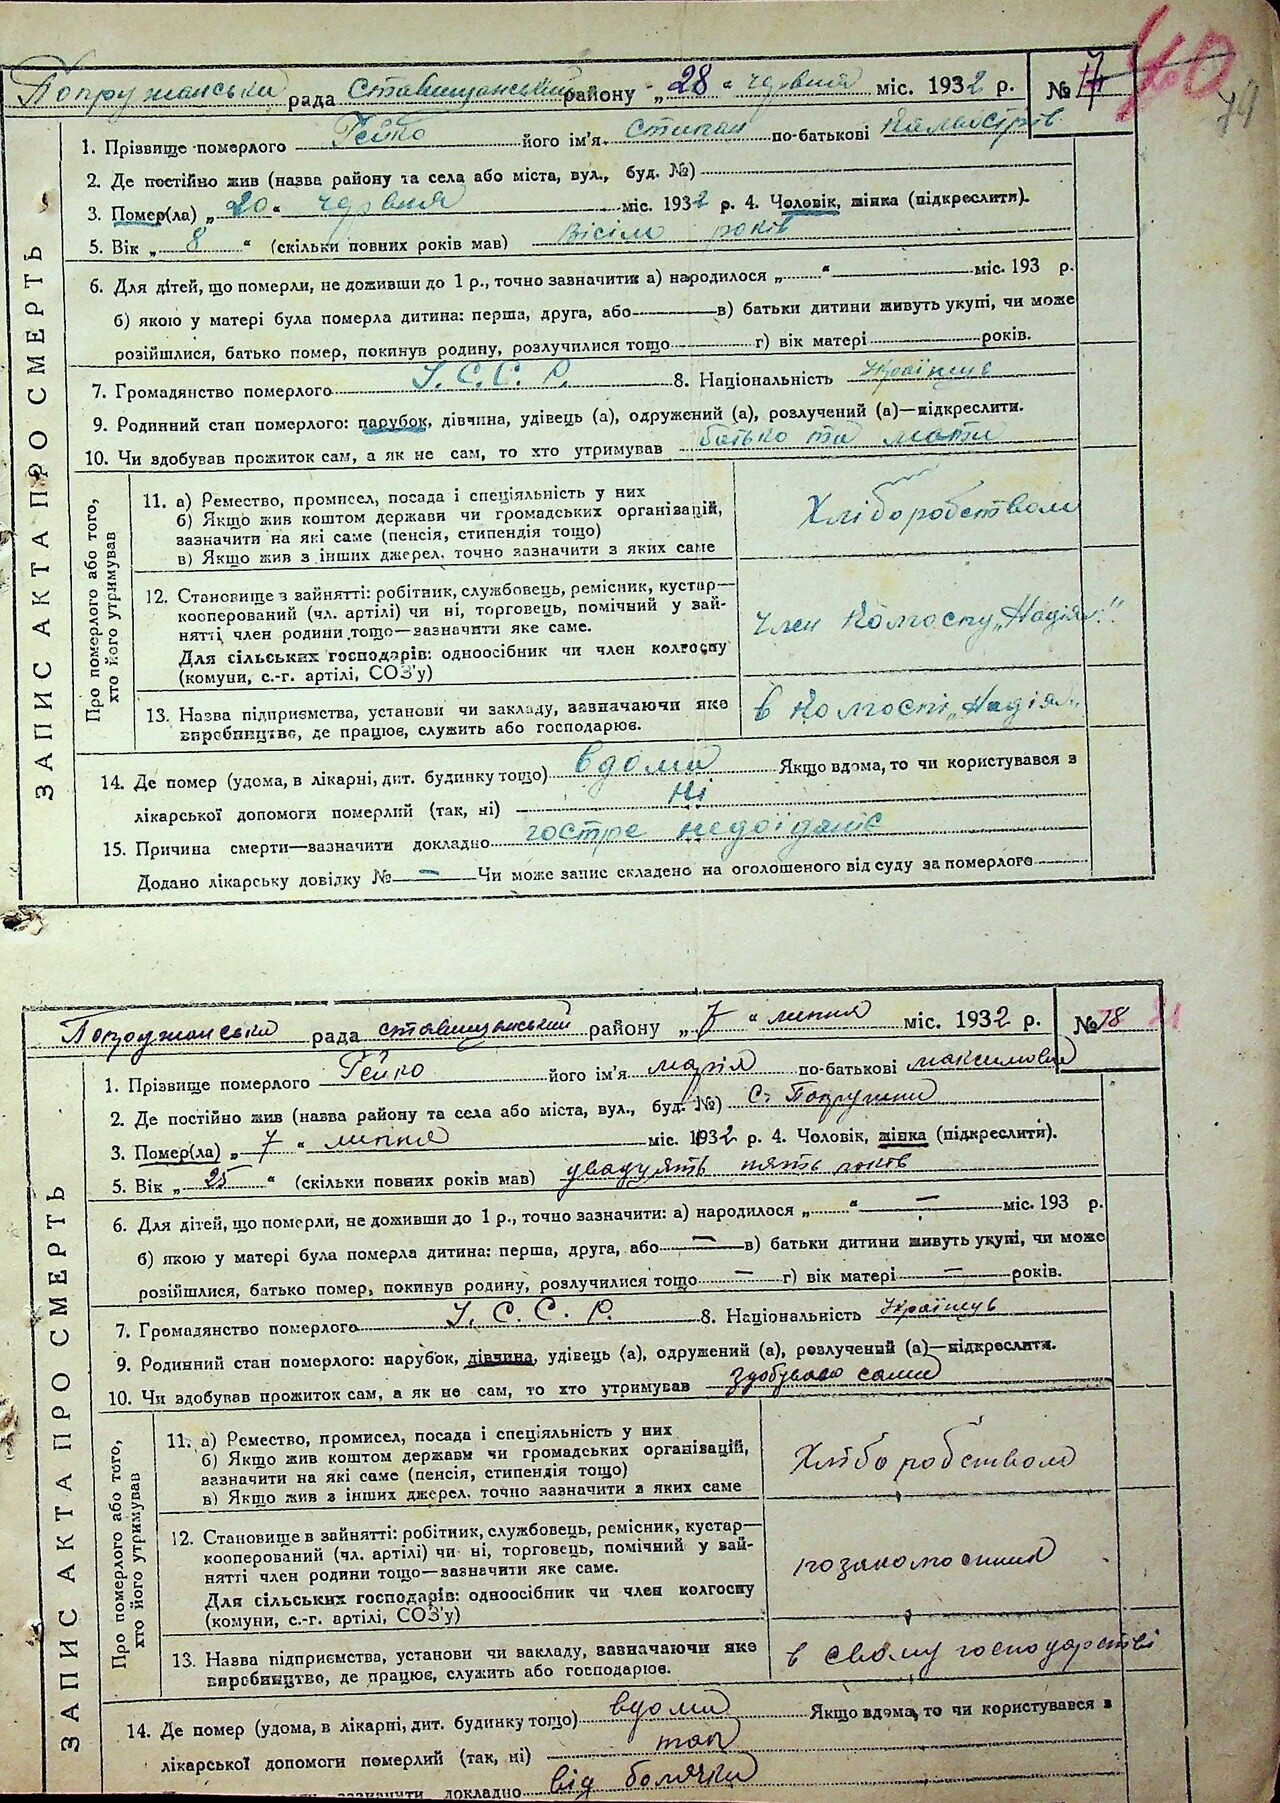 40
79
Попружанська рада Ставищанський району „28“ червня міс. 1932 р. № 17
ЗАПИС АКТА ПРО СМЕРТЬ
1. Прізвище померлого Гейко його ім'я степан по-батькові
2. Де постійно жив (назва району та села або міста, вул., буд. №)
3. Помер(ла) „20“ червня міс. 1932 р. 4. Чоловік, жінка (підкреслити).
5. Вік „8“ (скільки повних років мав) вісім років
6. Для дітей, що померли, не доживши до 1 р., точно зазначити: а) народилося „ “ міс. 193 р.
б) якою у матері була померла дитина: перша, друга, або — в) батьки дитини живуть укупі, чи може
розійшлися, батько помер, покинув родину, розлучилися тощо — г) вік матері років.
7. Громадянство померлого У. С. С. Р. 8. Національність Українець
9. Родинний стан померлого: парубок, дівчина, удівець (а), одружений (а), розлучений (а)—підкреслити.
10. Чи здобував прожиток сам, а як не сам, то хто утримував батько та мати
Про померлого або того,
хто його утримував
11. а) Ремество, промисел, посада і спеціяльність у них
б) Якщо жив коштом держави чи громадських організацій,
зазначити на які саме (пенсія, стипендія тощо)
в) Якщо жив з інших джерел, точно зазначити з яких саме
Хліборобством
12. Становище в зайнятті: робітник, службовець, ремісник, кустар—
кооперований (чл. артілі) чи ні, торговець, помічний у зай-
нятті член родини тощо—зазначити яке саме.
Для сільських господарів: одноосібник чи член колгоспу
(комуни, с.-г. артілі, СОЗ'у)
член колгоспу „Надія“
13. Назва підприємства, установи чи закладу, зазначаючи яке
виробництво, де працює, служить або господарює.
в колгоспі „Надія“
14. Де помер (удома, в лікарні, дит. будинку тощо) вдома Якщо вдома, то чи користувався з
лікарської допомоги померлий (так, ні) ні
15. Причина смерти—зазначити докладно гостре недоїданіє
Додано лікарську довідку № — Чи може запис складено на оголошеного від суду за померлого
Попружанська рада ставищанський району „7“ липня міс. 1932 р. № 18
ЗАПИС АКТА ПРО СМЕРТЬ
1. Прізвище померлого Гейко його ім'я марія по-батькові максимовна
2. Де постійно жив (назва району та села або міста, вул., буд. №) С. Попружни
3. Помер(ла) „7“ липня міс. 1932 р. 4. Чоловік, жінка (підкреслити).
5. Вік „25“ (скільки повних років мав) двадцять пять років
6. Для дітей, що померли, не доживши до 1 р., точно зазначити: а) народилося „ “ — міс. 193 р.
б) якою у матері була померла дитина: перша, друга, або — в) батьки дитини живуть укупі, чи може
розійшлися, батько помер, покинув родину, розлучилися тощо — г) вік матері — років.
7. Громадянство померлого У. С. С. Р. 8. Національність Українець
9. Родинний стан померлого: парубок, дівчина, удівець (а), одружений (а), розлучений (а)—підкреслити.
10. Чи здобував прожиток сам, а як не сам, то хто утримував здобувала сама
Про померлого або того,
хто його утримував
11. а) Ремество, промисел, посада і спеціяльність у них
б) Якщо жив коштом держави чи громадських організацій,
зазначити на які саме (пенсія, стипендія тощо)
в) Якщо жив з інших джерел, точно зазначити з яких саме
Хлібо робством
12. Становище в зайнятті: робітник, службовець, ремісник, кустар—
кооперований (чл. артілі) чи ні, торговець, помічний у зай-
нятті член родини тощо—зазначити яке саме.
Для сільських господарів: одноосібник чи член колгоспу
(комуни, с.-г. артілі, СОЗ'у)
13. Назва підприємства, установи чи закладу, зазначаючи яке
виробництво, де працює, служить або господарює.
в свому господарстві
14. Де помер (удома, в лікарні, дит. будинку тощо) вдома Якщо вдома, то чи користувався з
лікарської допомоги померлий (так, ні) так
зазначити докладно від болячки